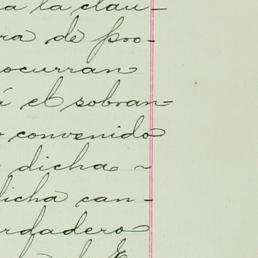 a la clau-
ra de pro-
ocurran
á el sobran=
o convenido
dicha ~
dicha can-
rdadero